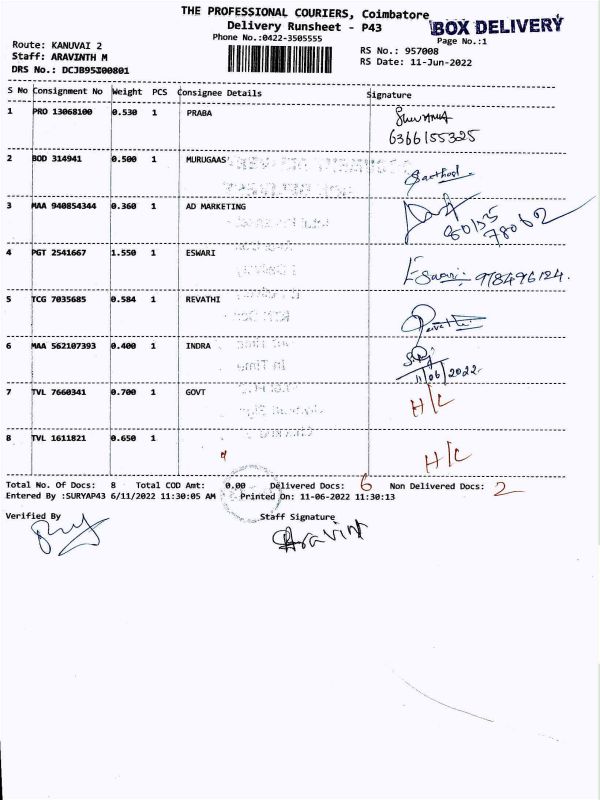 THE PROFESSIONAL COURIERS, Coimbatore
Delivery Runsheet - P43
BOX DELIVERY
Phone No.:0422-3505555
Page No.:1
Route: KANUVAI 2
Staff: ARAVINTH M
DRS No.: DCJB95J00801
RS No.: 957008
RS Date: 11-Jun-2022
S No Consignment No Weight PCS Consignee Details Signature
1 PRO 13068100 0.530 1 PRABA
6366155325
2 BOD 314941 0.500 1 MURUGAAS
3 MAA 940854344 0.360 1 AD MARKETING
60155
78062
4 PGT 2541667 1.550 1 ESWARI Eswari: 978496124.
5 TCG 7035685 0.584 1 REVATHI Revathi
6 MAA 562107393 0.400 1 INDRA
11/06/2022
7 TVL 7660341 0.700 1 GOVT H/C
8 TVL 1611821 0.650 1 H/C
Total No. Of Docs: 8 Total COD Amt: 0.00 Delivered Docs: 6 Non Delivered Docs: 2
Entered By :SURYAP43 6/11/2022 11:30:05 AM Printed On: 11-06-2022 11:30:13
Verified By Staff Signature
Aravint